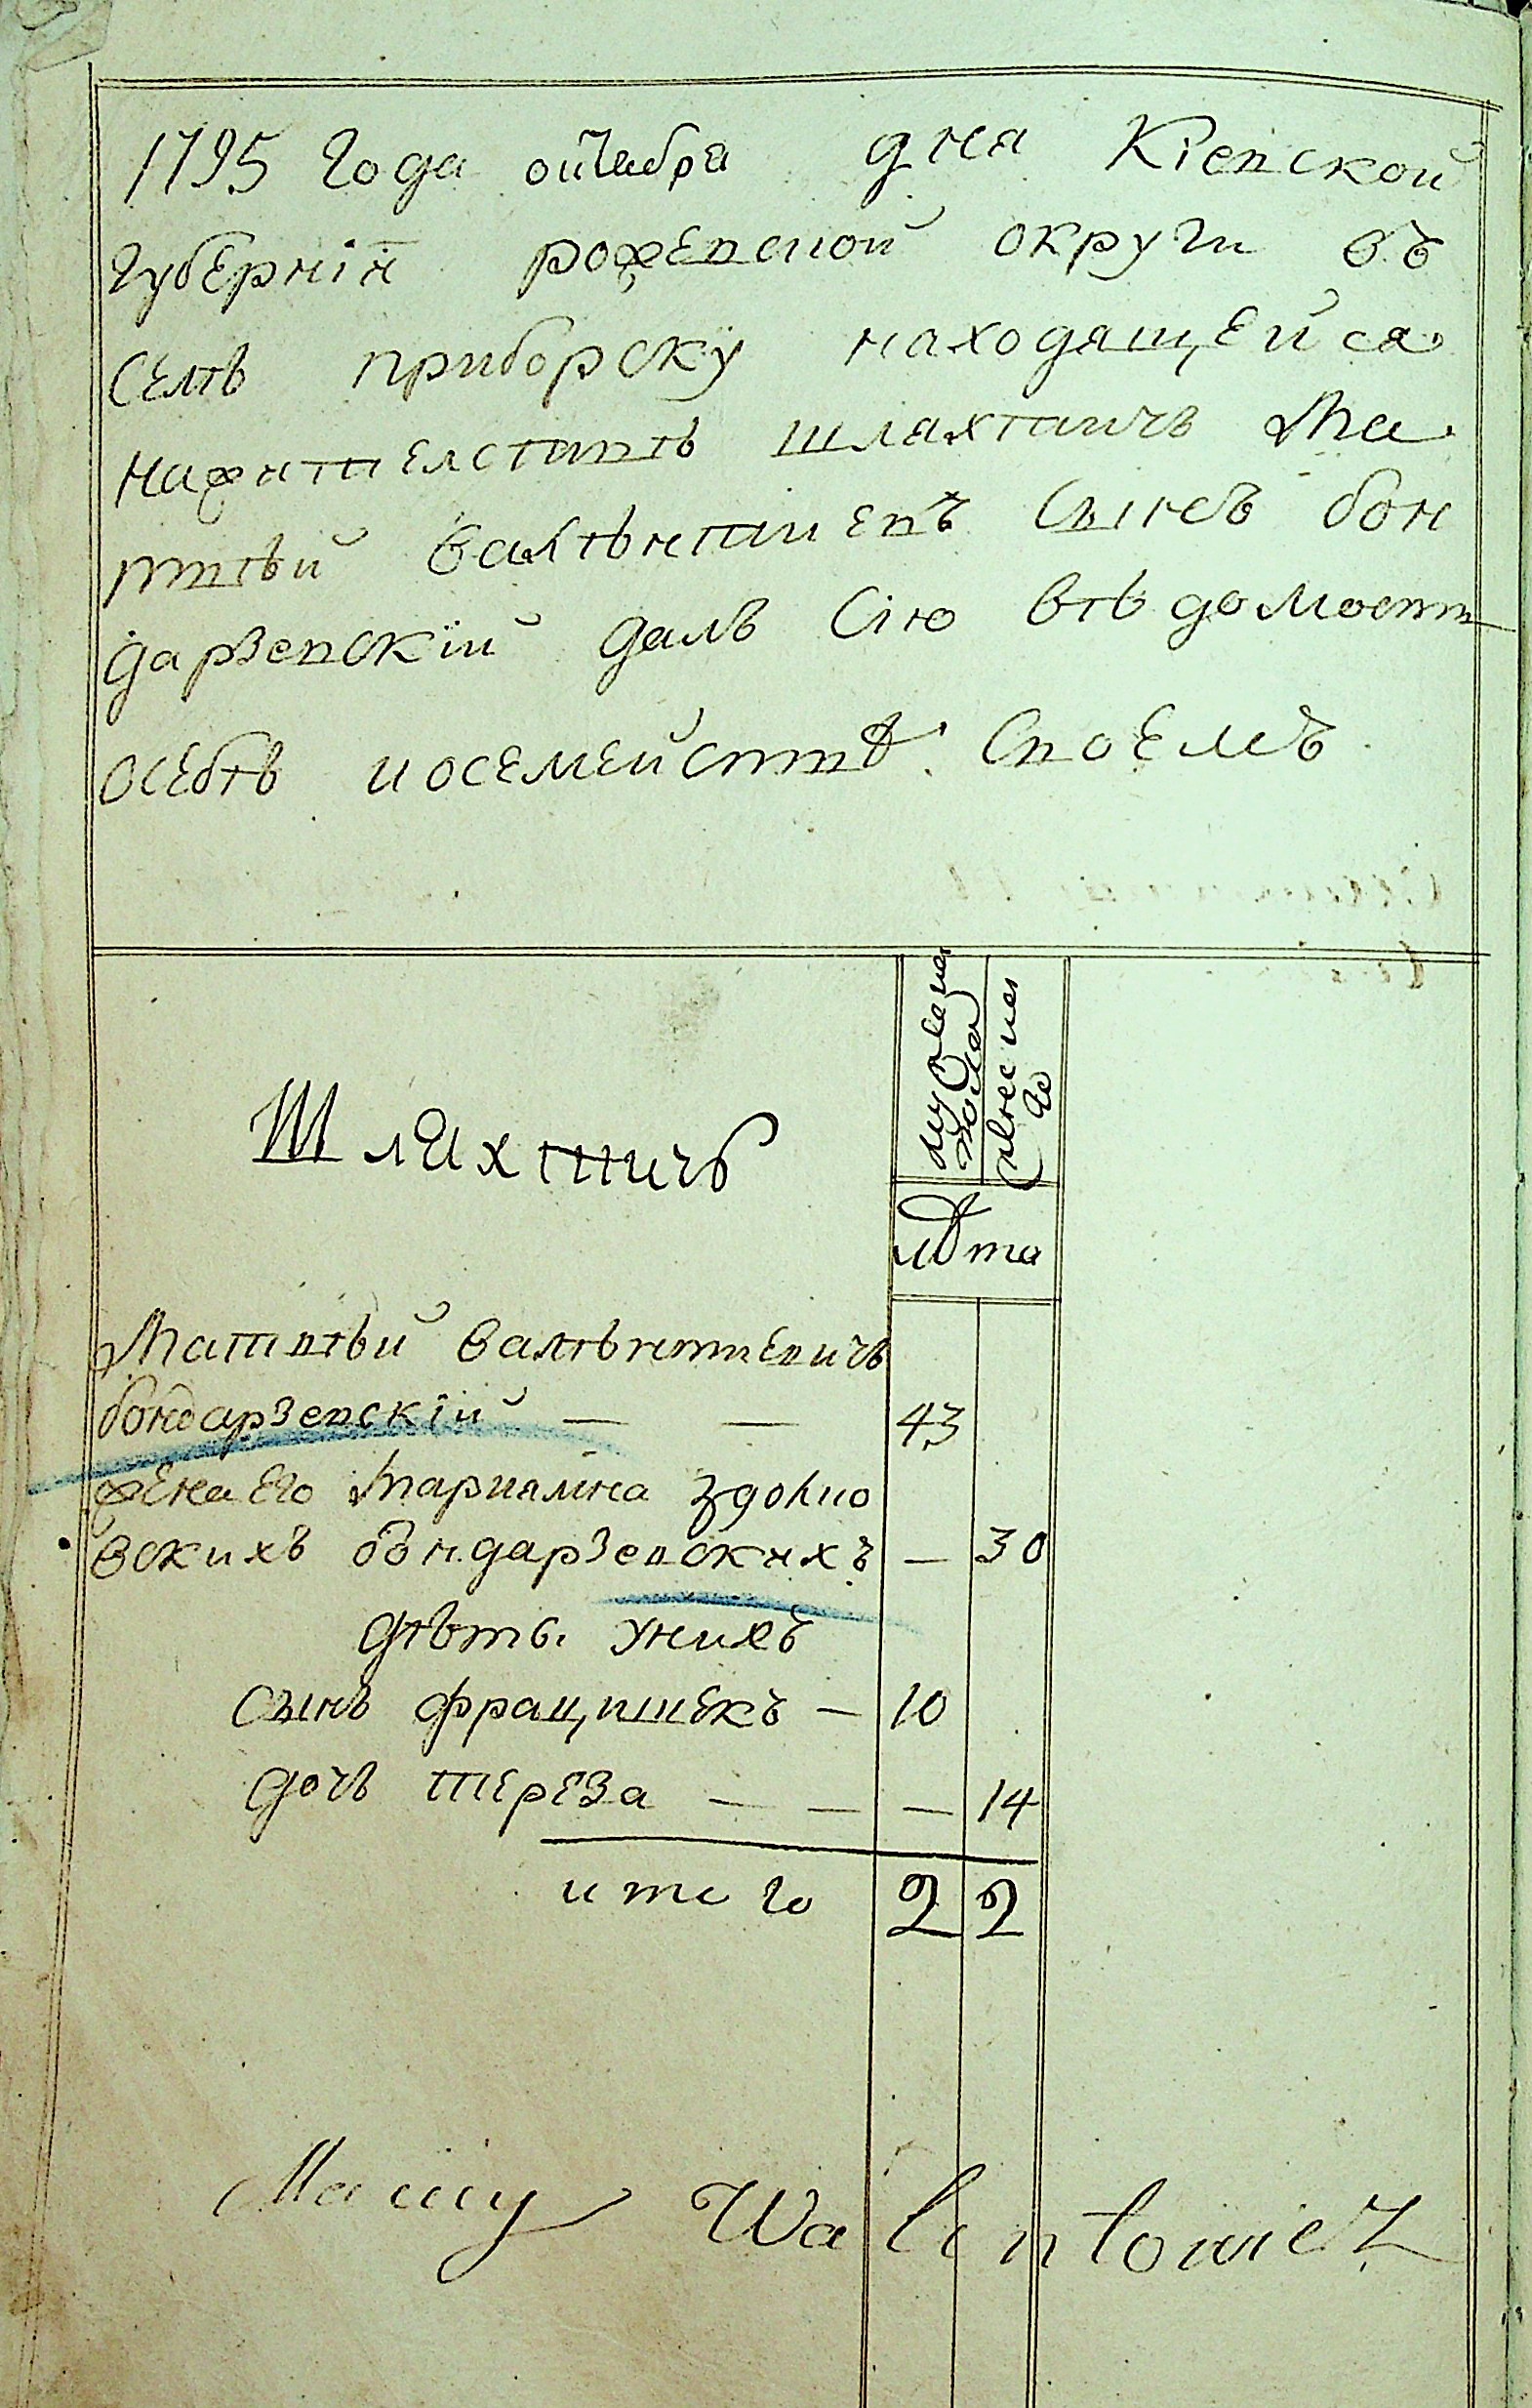 1795 года октября дня Кіевской
губерніи рожевской округи въ
селѣ приборску находящейся
нажителстивѣ шляхтичъ Ма
твѣй валѣнтиевъ сынъ бон
дарзевскій далъ сію вѣдомост
осебѣ иосемействѣ своемъ
мужеска
полка
женска
го
Шляхтичъ
лѣта
Матвѣй валѣнтиевичъ
бондарзевскій — — 43
жена его Мариянна здолно
вскихъ бондарзевскихъ — 30
дѣти унихъ
сынъ францишекъ — 10
дочъ тереза — — — 14
итого 2 2
Maciiy Walentowicz